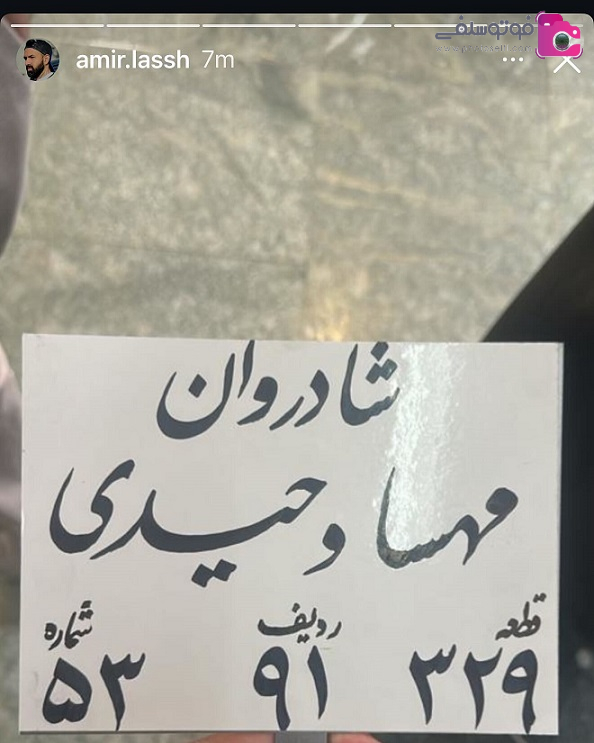 فوتوسلفی
amir.lassh 7m
شادروان
مهسا وحیدی
قطعه ردیف شماره
۳۲۹ ۹۱ ۵۳